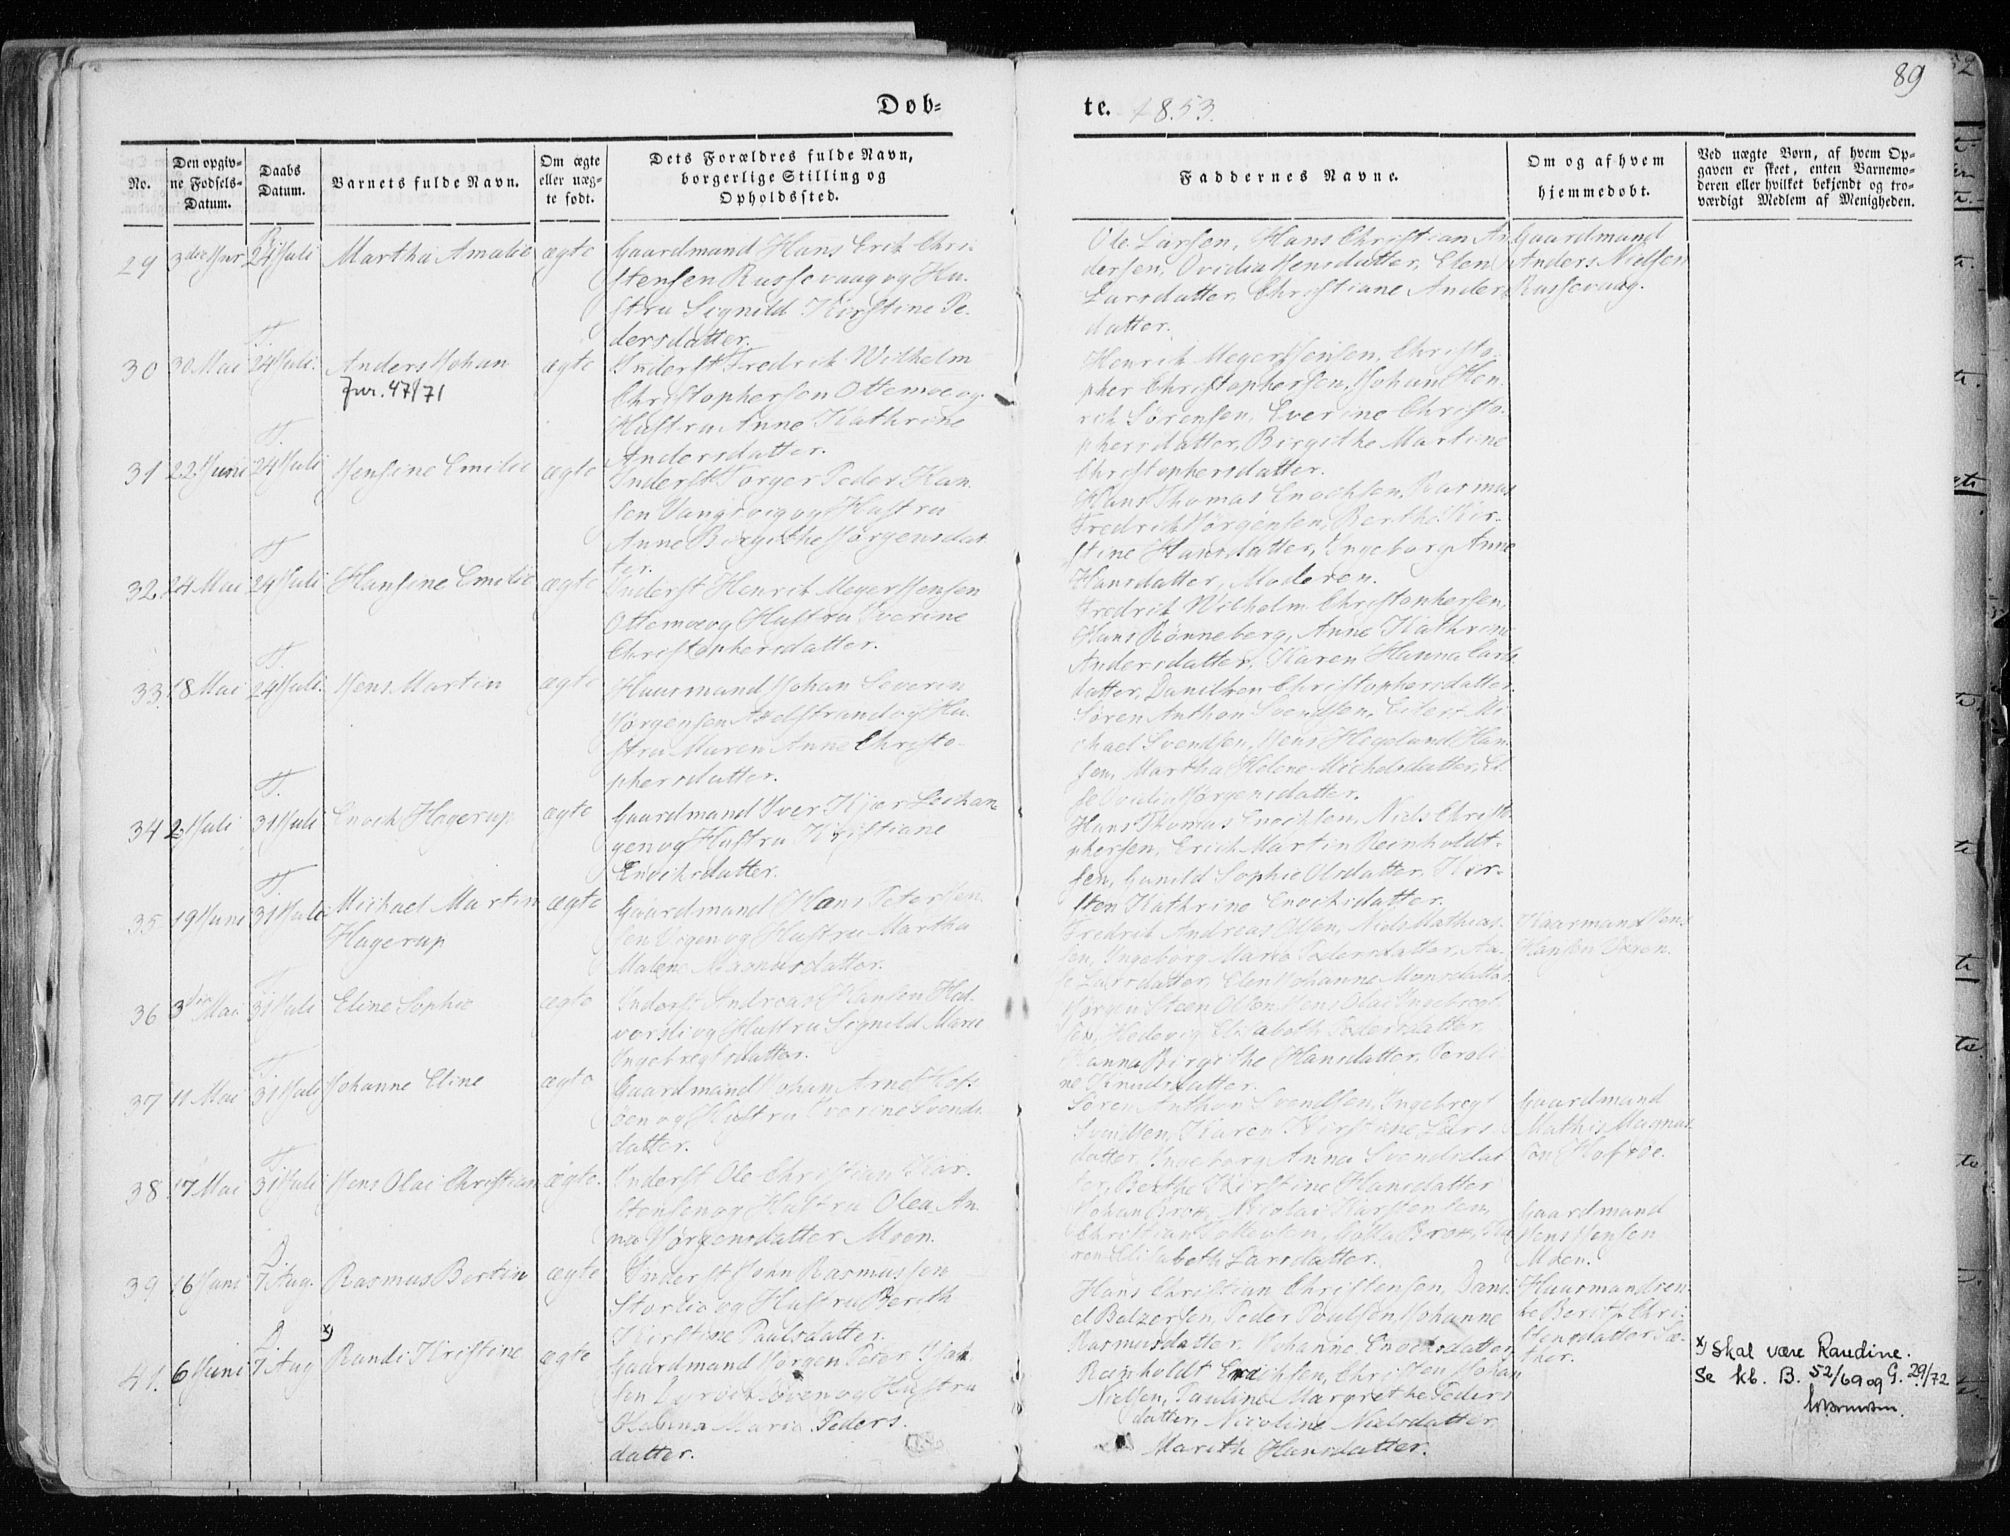 89
Døb-
te. 1853.
No.
Den opgiv-
ne Fødsels-
Datum.
Daabs
Datum.
Barnets fulde Navn.
Om ægte
eller uæg-
te født.
Dets Forældres fulde Navn,
borgerlige Stilling og
Opholdssted.
Faddernes Navne.
Om og af hvem
hjemmedøbt.
Ved uægte Børn, af hvem Op-
gaven er skeet, enten Barnemo-
deren eller hvilket bekjendt og tro-
værdigt Medlem af Menigheden.
29 3die Juni 24 Juli Martha Amalie ægte
Gaardmand Hans Erik Chri-
stensen Russevaag og Hu-
stru Signild Kirstine Pe-
dersdatter.
Ole Larsen, Hans Christian An-
dersen, Ovidia Jensdatter, Elen
Larsdatter, Christiane Anders
datter.
Gaardmand
Anders Nielsen
Russevaag.
T.
30 30 Mai 24 Juli. Anders Johan ægte
Jvr. 47/71
Inderst Fredrik Wilhelm
Christophersen Ottemoe og
Hustru Anne Kathrine
Andersdatter.
Henrik Meyer Jensen, Christo-
pher Christophersen, Johan Hen-
rik Sørensen, Everine Christo-
phersdatter, Birgithe Martine
Christophersdatter.
T.
31 22 Juni 24 Juli Jensine Emilie ægte
Inderst Torger Peder Han-
sen Vangsvig og Hustru
Anne Birgithe Jørgensdat-
ter.
Hans Thomas Enochsen, Rasmus
Fredrik Jørgensen, Berthe Kir-
stine Hansdatter, Ingeborg Anne
Hansdatter, Moderen.
T.
32. 24 Mai 24 Juli Hansine Emilie ægte
Inderst Henrik Meyer Jensen
Ottemoe og Hustru Iverine
Christophersdatter.
Fredrik Wilhelm Christophersen,
Hans Rønneberg, Anne Kathrine
Andersdatter, Karen Hanna Carls-
datter, Christophersdatter.
T.
33. 18 Mai 24 Juli. Jens Martin ægte
Huusmand Johan Severin
Jørgensen Axelstrand og Hu-
stru Maren Anne Christo-
phersdatter.
Søren Anthon Svendsen, Eilert Mi-
chael Svendsen, Jens Hegelund Han-
sen, Martha Helene Michelsdatter, El-
se Ovidia Jørgensdatter.
T.
34 2 Juli 31 Juli Enoch Hagerup ægte
Gaardmand Iver Kjær Leikan-
gen og Hustru Kristiane
Enochsdatter.
Hans Thomas Enochsen, Niels Christo-
phersen, Erich Martin Reinholdt-
sen, Gunild Sophie Olsdatter, Kir-
sten Kathrine Enochsdatter.
T.
35 19 Juni 31 Juli Michael Martin ægte
Hagerup
Gaardmand Hans Peter Jen-
sen og Hustru Martha
Malene Rasmusdatter.
Fredrik Andreas Olsen, Niels Mathias-
sen, Ingeborg Marie Pedersdatter, Aa-
se Larsdatter, Elen Johanne Monsdatter.
Huusmand Jens
Hansen
T.
36 3die Mai 31 Juli Eline Sophie ægte
Inderst Andreas Hansen Hal-
vorsli og Hustru Signild Marie
Ingebregtsdatter.
Jørgen Steen Olsen, Jens Olai Ingebregt-
sen, Hedevig Elisabeth Pedersdatter,
Hanna Birgithe Hansdatter, Peroli-
ne Knudsdatter.
T.
37 11 Mai 31 Juli Johanne Eline ægte
Gaardmand Johan Arnt Hofs-
øen og Hustru Iverine Svends-
datter.
Søren Anthon Svendsen, Ingebregt
Svendsen, Karen Kirstine Lars-
datter, Ingeborg Anna Svendsdat-
ter, Berthe Kirstine Hansdatter
Gaardmand
Mathis Magnus-
sen Hofsøe.
T.
38 17 Mai 31 Juli Jens Olai Christian ægte.
Inderst Ole Christian Kar-
stensen og Hustru Olea An-
na Jørgensdatter Moen.
Johan Brox, Nicolai Karstensen,
Christian
Elisabeth Larsdatter.
Gaardmand
Jens Jensen
Moen.
D.
39 16 Juni 7 Aug. Rasmus Bertin ægte
Inderst John Rasmussen
Storlia og Hustru Berith
Kirstine Paulsdatter.
Hans Christian Christensen, Dani-
el Balzersen, Peder Paulsen, Johanne
Rasmusdatter, Johanne Enochsdatter
Huusmandsen-
ke Berith Chri-
stensdatter Sæ-
ther.
D.
x)
41. 6 Juni 7 Aug Randi Kristine ægte
Gaardmand Jørgen Peter Joh-
sen og Hustru
Hanna Maria Peders-
datter.
Reinholdt Erichsen, Christen Johan
Nielsen, Pauline Margrethe Peders-
datter, Nicoline Nielsdatter
Marith Hansdatter.
x) Skal være Randine.
Se kb. B. 52/69 og G. 29/72